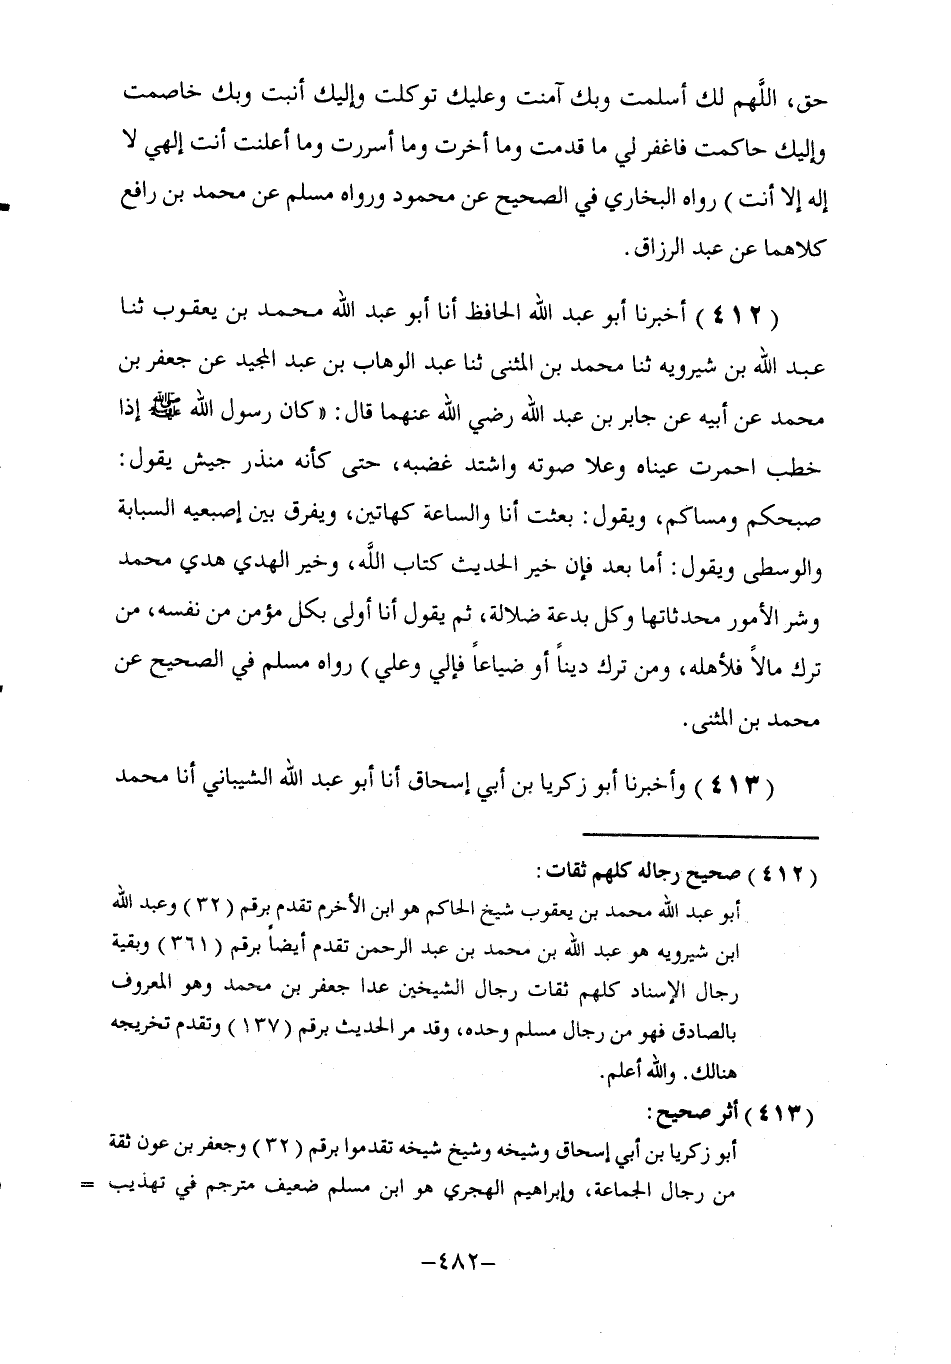 حق، اللَّهم لك أسلمت وبك آمنت وعليك توكلت وإليك أنبت وبك خاصمت
وإليك حاكمت فاغفر لي ما قدمت وما أخرت وما أسررت وما أعلنت أنت إلهي لا
إله إلا أنت ) رواه البخاري في الصحيح عن محمود ورواه مسلم عن محمد بن رافع
كلاهما عن عبد الرزاق.
(٤١٢) أخبرنا أبو عبد الله الحافظ أنا أبو عبد الله محمد بن يعقوب ثنا
عبد الله بن شيرويه ثنا محمد بن المثنى ثنا عبد الوهاب بن عبد المجيد عن جعفر بن
محمد عن أبيه عن جابر بن عبد الله رضي الله عنهما قال: «كان رسول الله ﷺ إذا
خطب احمرت عيناه وعلا صوته واشتد غضبه، حتى كأنه منذر جيش يقول:
صبحكم ومساكم، ويقول: بعثت أنا والساعة كهاتين، ويفرق بين إصبعيه السبابة
والوسطى ويقول: أما بعد فإن خير الحديث كتاب اللَّه، وخير الهدي هدي محمد
وشر الأمور محدثاتها وكل بدعة ضلالة، ثم يقول أنا أولى بكل مؤمن من نفسه، من
ترك مالاً فلأهله، ومن ترك ديناً أو ضياعاً فإلي وعلي) رواه مسلم في الصحيح عن
محمد بن المثنى.
(٤١٣) وأخبرنا أبو زكريا بن أبي إسحاق أنا أبو عبد الله الشيباني أنا محمد
(٤١٢) صحيح رجاله كلهم ثقات:
أبو عبد الله محمد بن يعقوب شيخ الحاكم هو ابن الأخرم تقدم برقم (٣٢) وعبد الله
ابن شيرويه هو عبد الله بن محمد بن عبد الرحمن تقدم أيضاً برقم (٣٦١) وبقية
رجال الإسناد كلهم ثقات رجال الشيخين عدا جعفر بن محمد وهو المعروف
بالصادق فهو من رجال مسلم وحده، وقد مر الحديث برقم (١٣٧) وتقدم تخريجه
هنالك. والله أعلم.
(٤١٣) أثر صحيح:
أبو زكريا بن أبي إسحاق وشيخه وشيخ شيخه تقدموا برقم (٣٢) وجعفر بن عون ثقة
من رجال الجماعة، وإبراهيم الهجري هو ابن مسلم ضعيف مترجم في تهذيب =
-٤٨٢-